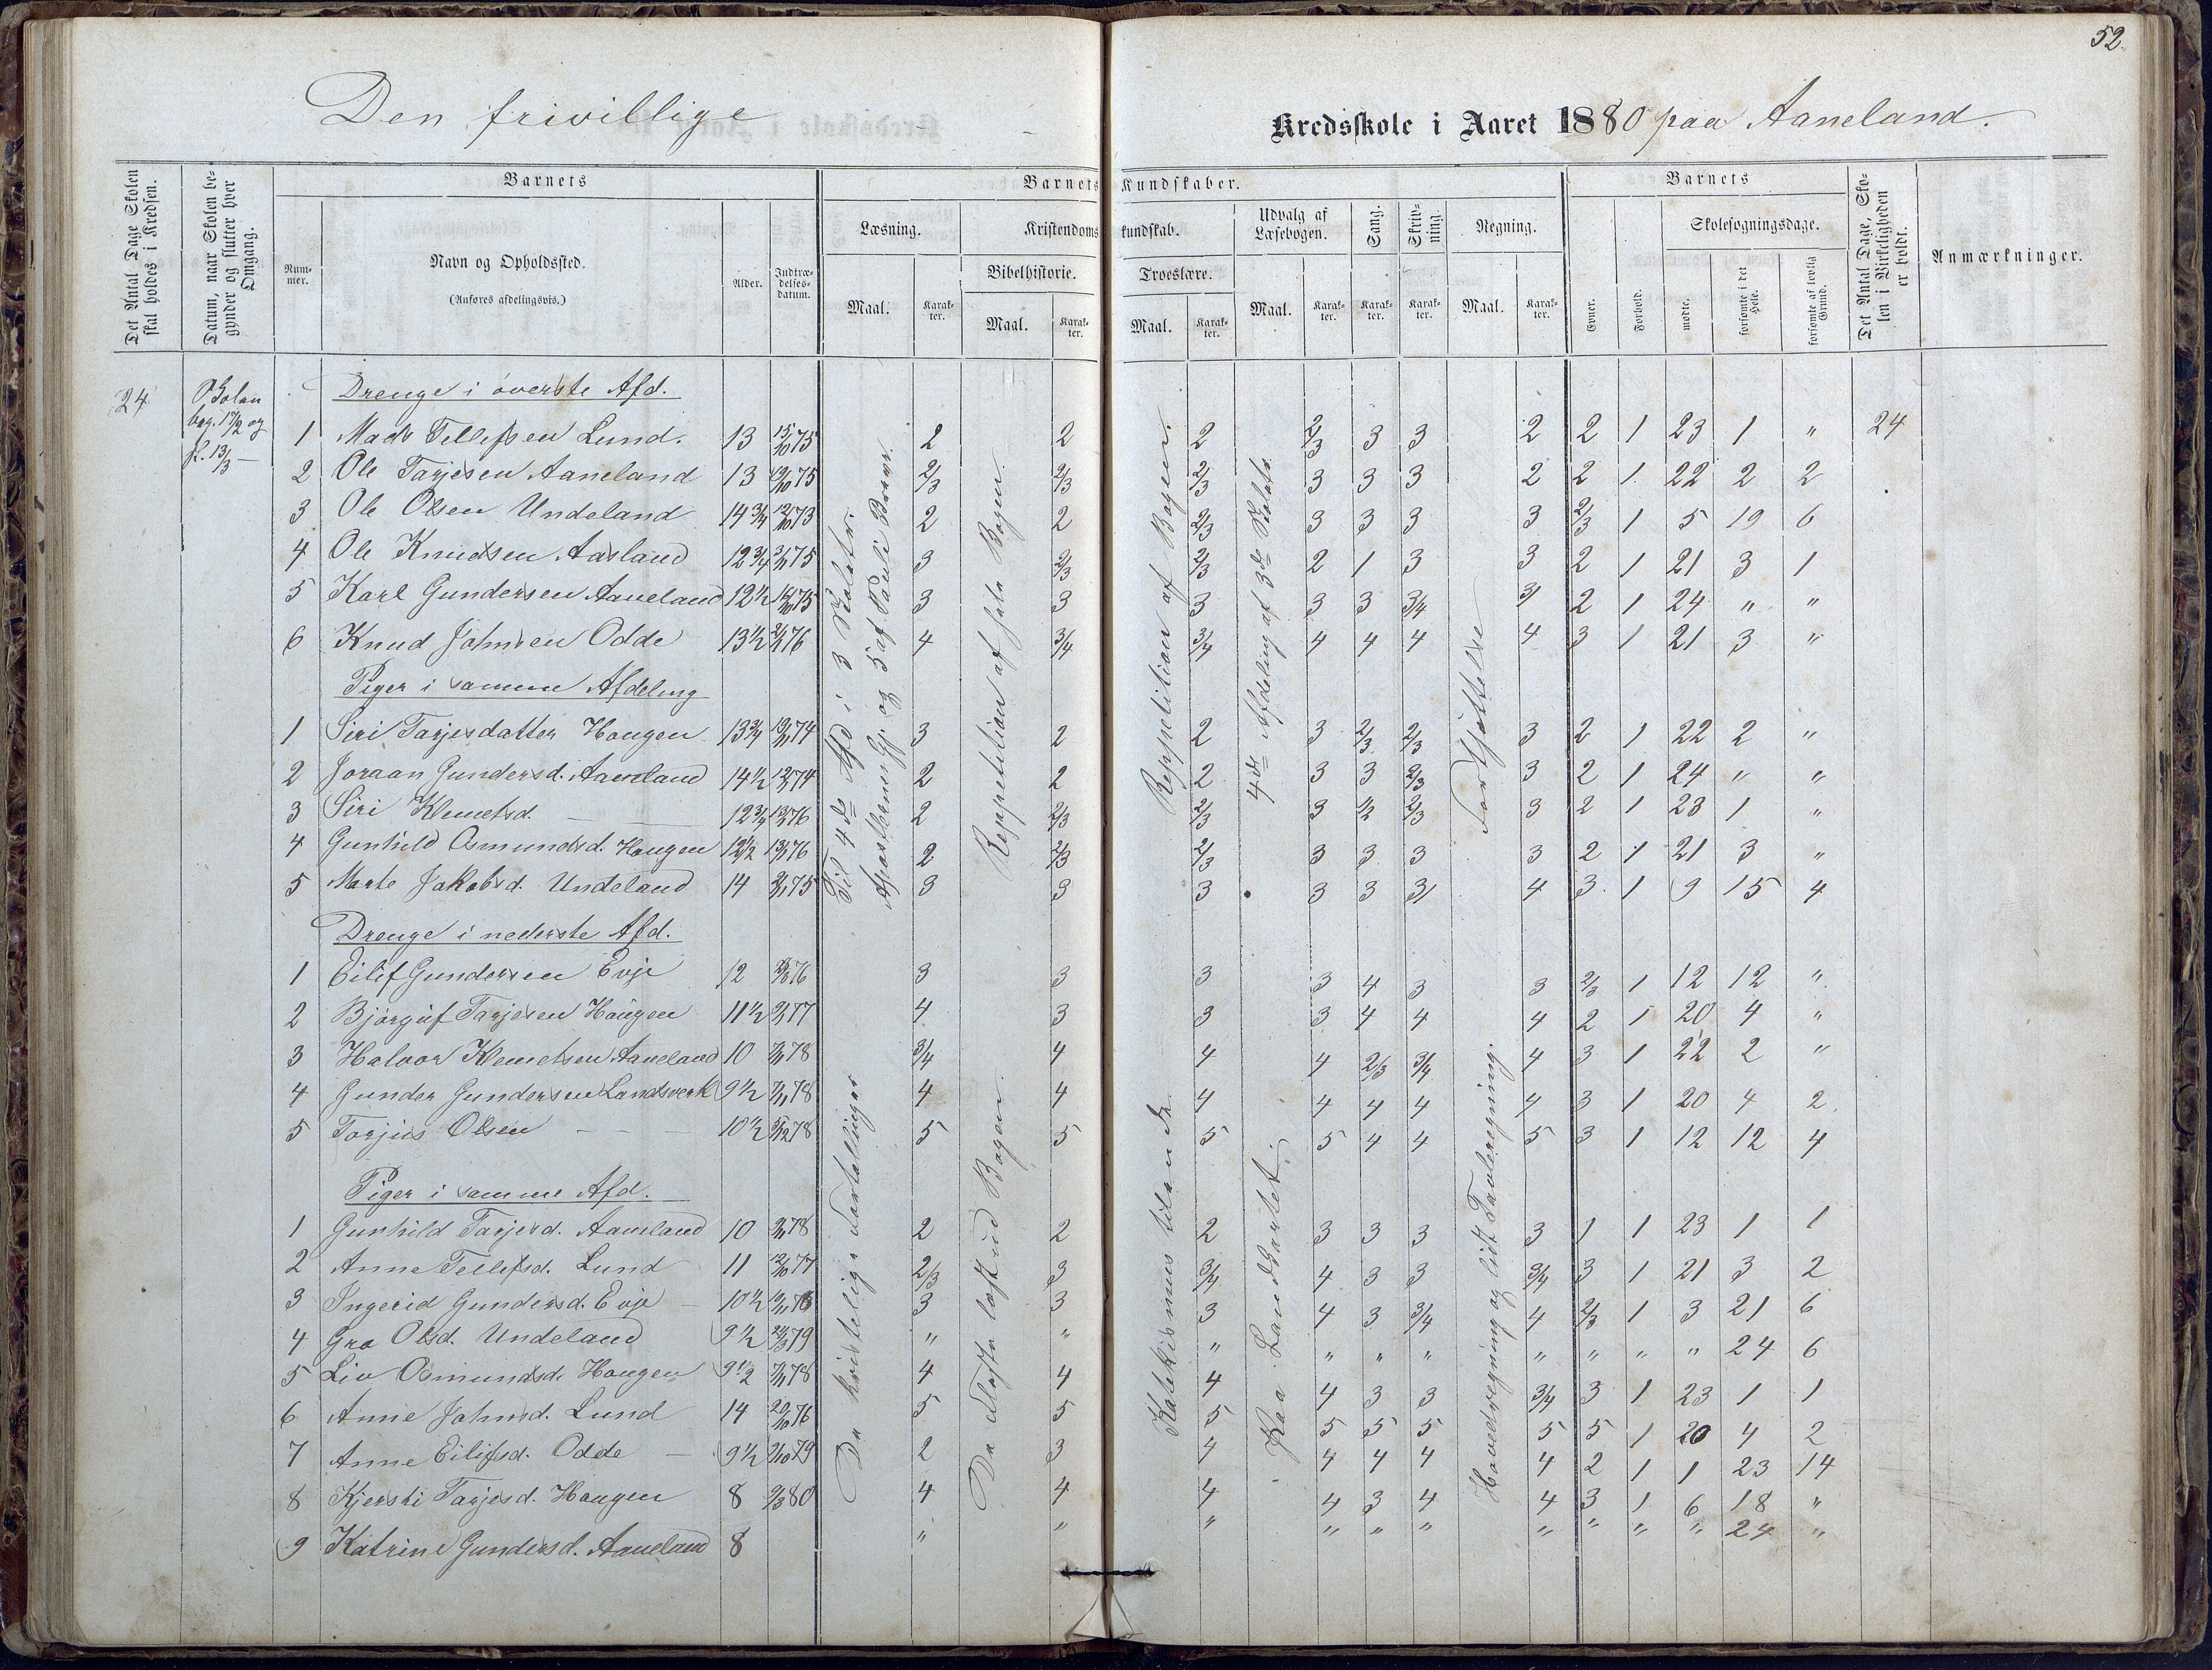 52.
Den frivillige Kredsskole i Aaret 1880 paa Aaneland.
Det Antal Dage Skolen skal holdes i Kredsen.
Datum, naar Skolen begynder og slutter hver Omgang.
Barnets
Nummer.
Navn og Opholdssted.
(Anføres afdelingsvis.)
Alder.
Indtrædelsesdatum.
Barnets Kundskaber.
Læsning.
Maal.
Karakter.
Kristendomskundskab.
Bibelhistorie.
Maal.
Karakter.
Troeslære.
Maal.
Karakter.
Udvalg af Læsebogen.
Maal.
Karakter.
Sang.
Karakter.
Skrivning.
Karakter.
Regning.
Maal.
Karakter.
Barnets
Evner.
Forhold.
Skolesøgningsdage.
mødte.
forsømte i det Hele.
forsømte af lovlig Grund.
Det Antal Dage, Skolen i Virkeligheden er holdt.
Anmærkninger.
24
beg. 17/2 og
sl. 13/3 —
Drenge i øverste Afd.
1 Mads Tellefsen Lund. 13 15/10 75 2 2 2 2/3 3 3 2 2 1 23 1 " 24
2 Ole Tarjesen Aaneland 13 75 2/3 2/3 2/3 3 3 3 2 2 1 22 2 2
3 Ole Olsen Undeland 14 3/4 12/10 73 2 2 2/3 3 3 3 3 2/3 1 5 19 6
4 Ole Knudsen Aasland 12 3/4 75 3 2/3 2/3 2 1 3 3 2 1 21 3 1
5 Karl Gundersen Aaneland 12 1/2 75 3 3 3 3 3 3/4 3 2 1 24 " "
6 Knud Johnsen Odde 13 1/2 76 4 3/4 3/4 4 4 4 4 3 1 21 3 "
Piger i samme Afdeling
1 Siri Tarjesdatter Haugen 13 3/4 74 3 2 2 3 2/3 2/3 3 2 1 22 2 "
2 Joraan Gundersd. Aaneland 14 1/2 74 2 2 2 3 3 2/3 3 2 1 24 " "
3 Siri Klemetsd. — — 12 3/4 76 2 2/3 2/3 3 1/2 2/3 3 2 1 23 1 "
4 Gunhild Osmundsd. Haugen 12 1/2 76 2 2/3 2/3 3 3 3 3 2 1 21 3 "
5 Marte Jakobsd. Undeland 14 75 3 3 3 3 3 3 4 3 1 9 15 4
Drenge i nederste Afd.
1 Eilif Gundersen Evje 12 76 3 3 3 3 4 3 3 2/3 1 12 12 "
2 Bjørguf Tarjesen Haugen 11 1/2 77 4 3 3 3 4 4 4 2 1 20 4 "
3 Halvor Klemetsen Aaneland 10 78 3/4 4 4 4 2/3 3/4 4 3 1 22 2 "
4 Gunder Gundersen Landsverk 9 1/2 78 4 4 4 4 4 4 4 3 1 20 4 2
5 Torjus Olsen — — — 10 1/2 78 5 5 5 5 4 4 5 3 1 12 12 4
Piger i samme Afd.
1 Gunhild Tarjesd. Aaneland 10 78 2 2 2 3 3 3 3 1 1 23 1 1
2 Anne Tellefsd. Lund 11 12/10 77 2/3 3 3/4 4 3 3 3/4 3 1 21 3 2
3 Ingerid Gundersd. Evje — 10 1/2 78 3 3 3 4 3 3/4 4 2/3 1 3 21 6
4 Gro Olsd. Undeland 9 1/2 79 " " " " " " " " " " 24 6
5 Liv Osmundsd. Haugen 9 1/2 78 4 4 4 4 3 3 3/4 3 1 23 1 1
6 Anne Johnsd. Lund 14 20/10 76 5 5 5 5 5 5 5 5 1 20 4 2
7 Anne Eilifsd. Odde — 9 1/2 79 2 3 4 4 4 4 4 2 1 1 23 14
8 Kjersti Tarjesd. Haugen 8 80 4 4 4 4 3 4 4 3 1 6 18 "
9 Katrine Gundersd. Aaneland 8 " " " " " " " " " " 24 "
Til 4de Afd i 3
Apostlernes Gj. og 5 af Pauli Breve.
Reppetition af hele Bogen
Reppetition af Bogen.
4de Afdeling af 3de
Fortsættelse
De kristelige Fortællinger
De fleste læst ud Bogen
Katekismus tilende.
Paa Landkartet.
Hovedregning og lidt Tavleregning.